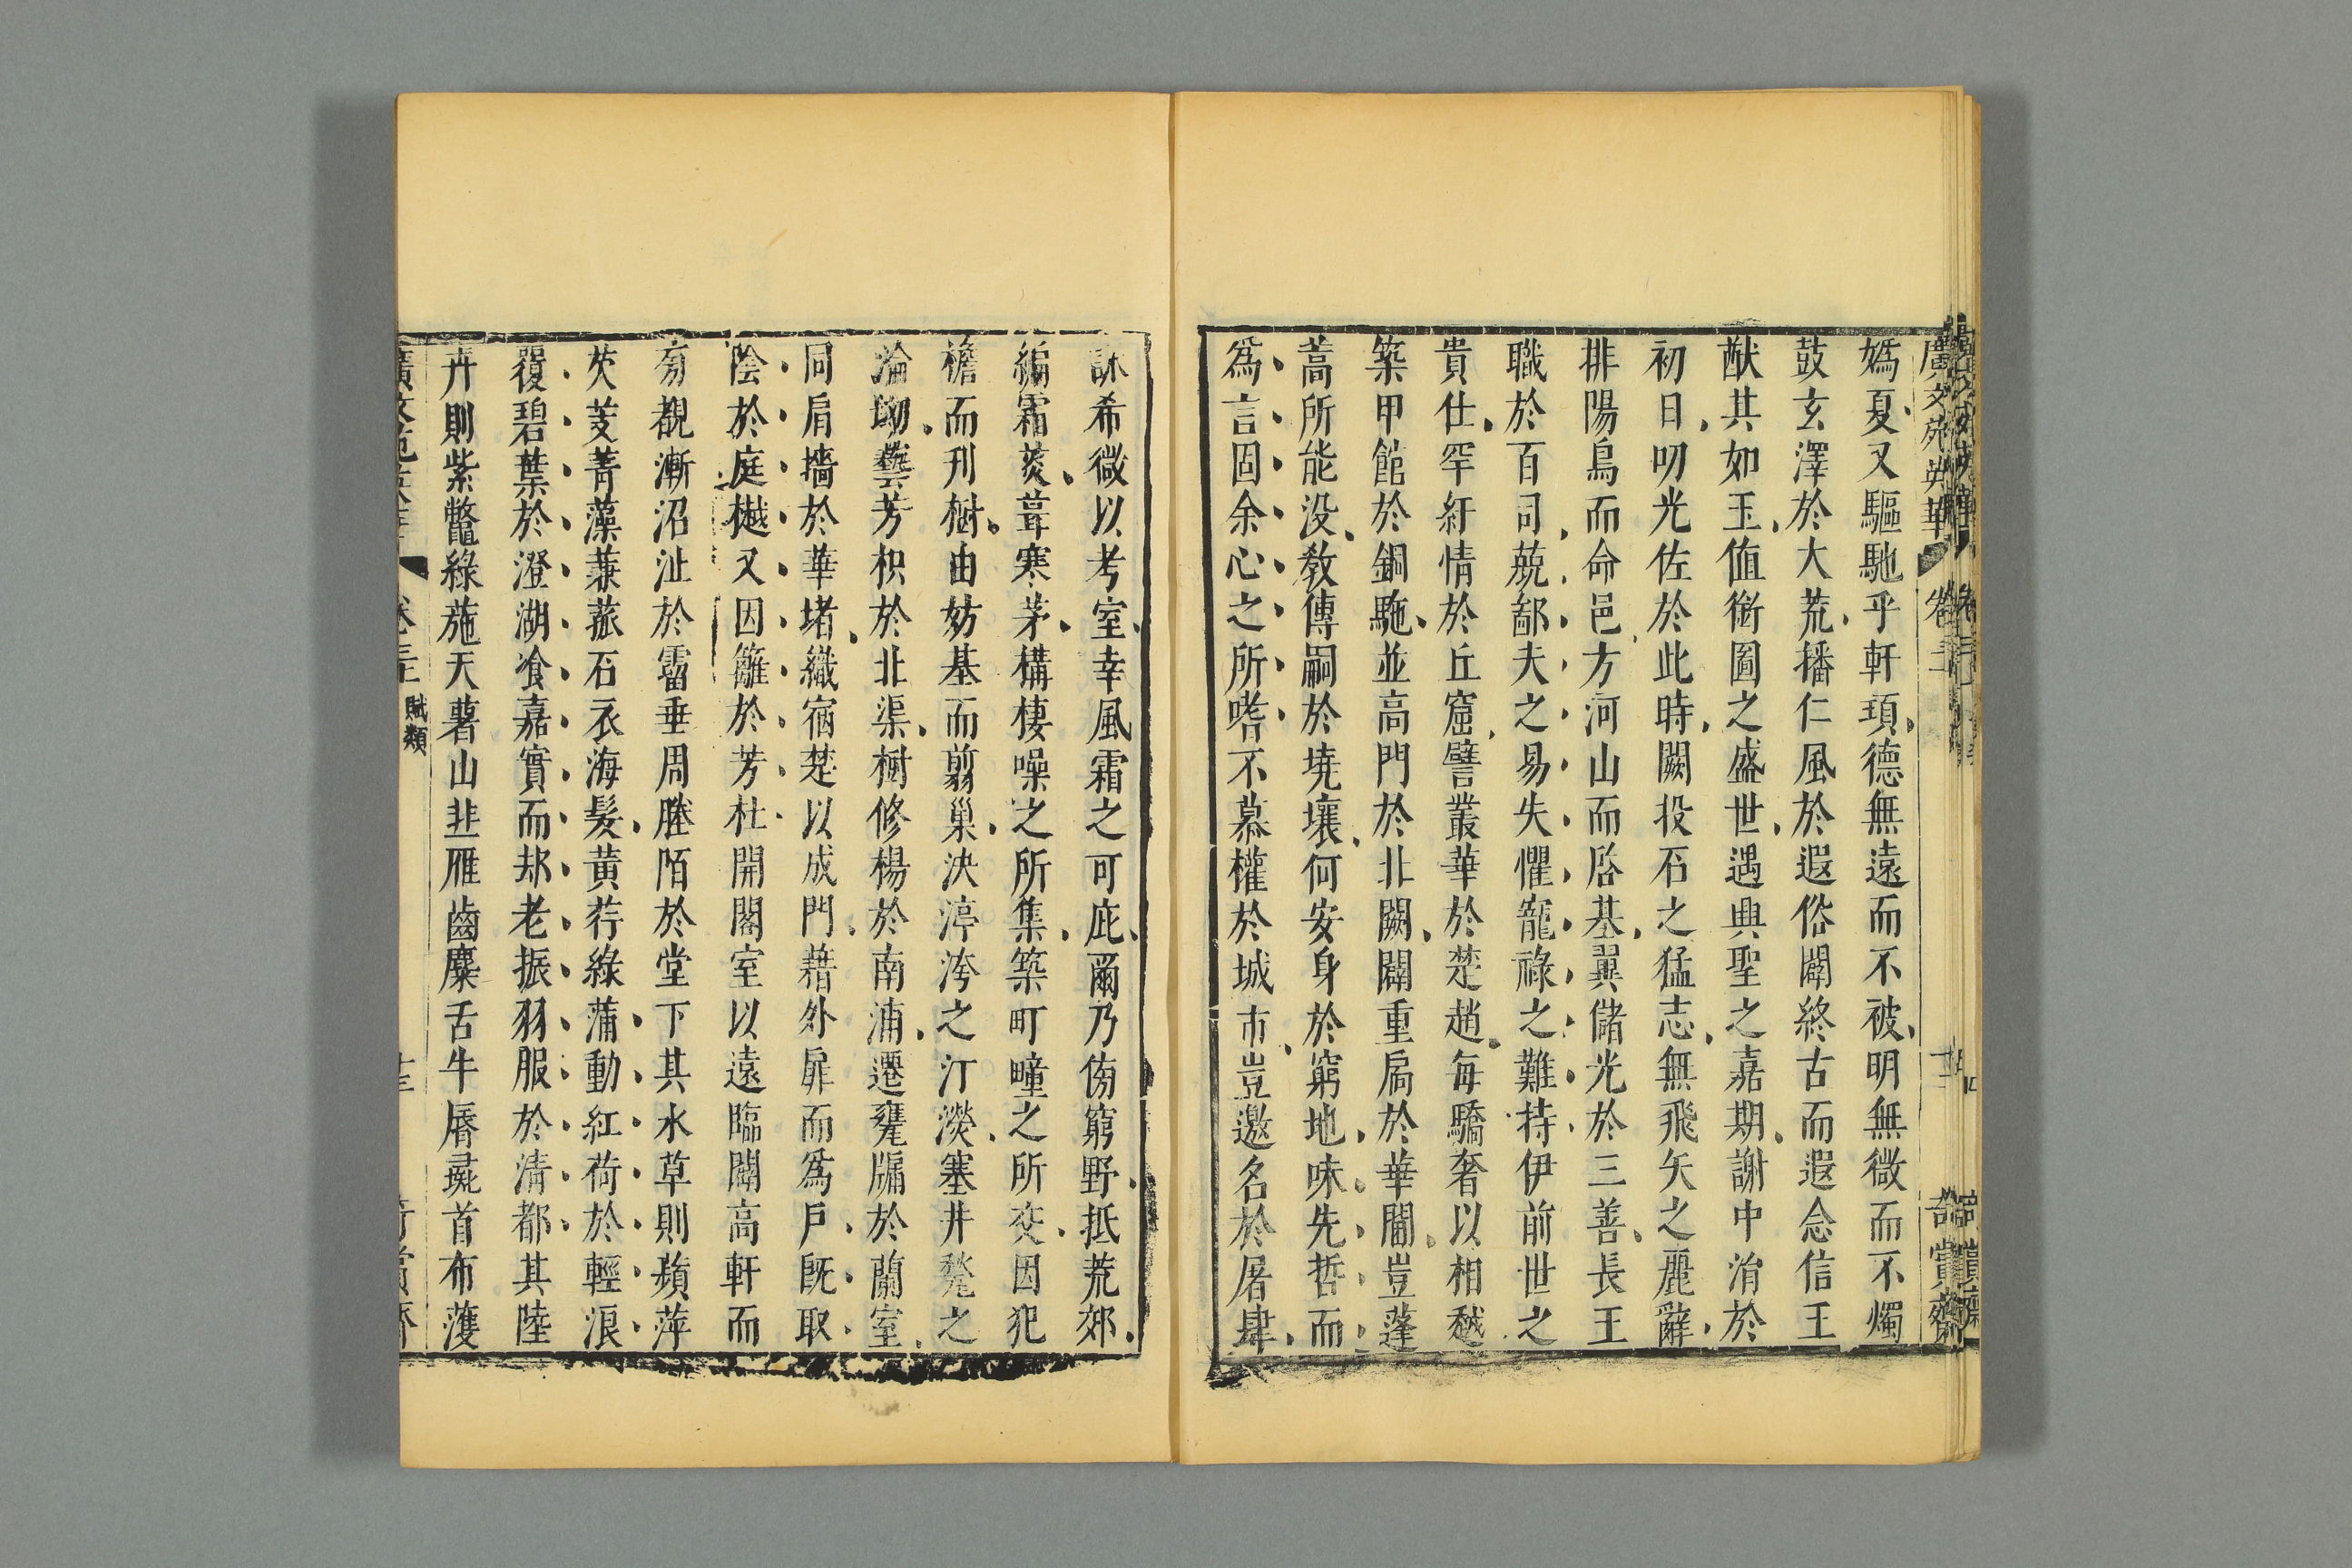 廣文苑英華 卷二 奇賞齋
嬀夏又驅馳乎軒頊德無遠而不被明無微而不燭
鼓玄澤於大荒播仁風於遐俗闢終古而遐念信王
猷其如玉值衘圖之盛世遇興聖之嘉期謝中涓於
初日叨光佐於此時闕投石之猛志無飛矢之麗辭
排陽鳥而命邑方河山而啓基翼儲光於三善長王
職於百司兢鄙夫之易失懼寵祿之難持伊前世之
貴仕罕紆情於丘窟譬叢華於楚趙每驕奢以相越
築甲館於銅駞並高門於北闕闢重扃於華閫豈蓬
蒿所能没敎傳嗣於墝壤何安身於窮地味先哲而
爲言固余心之所嗜不慕權於城市豈邀名於屠肆
詠希微以考室幸風霜之可庇爾乃傍窮野抵荒郊
編霜菼葺寒茅構棲噪之所集築町疃之所交因犯
檐而刋樹由妨基而翦巢決渟洿之汀濙塞井甃之
淪坳藝芳枳於北渠樹修楊於南浦遷甕牖於蘭室
同肩墻於華堵織宿楚以成門藉外扉而爲戶旣取
陰於庭樾又因籬於芳杜開閣室以遠臨闢高軒而
旁覩漸沼沚於霤垂周塍陌於堂下其水草則蘋萍
芡芰菁藻蒹菰石衣海髮黄荇綠蒲動紅荷於輕浪
覆碧葉於澄湖飡嘉實而却老振羽服於清都其陸
卉則紫虌綠葹天蓍山韭雁齒麋舌牛脣彘首布濩
卷二 賦類